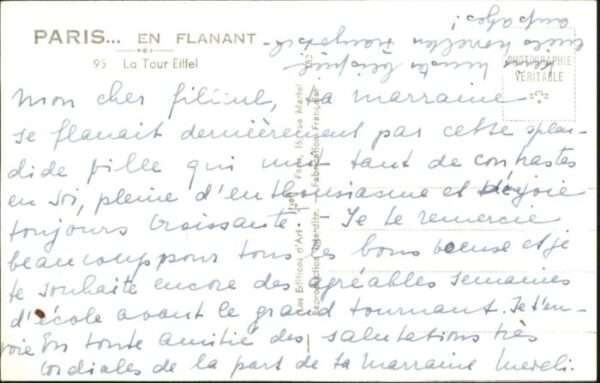 PARIS... EN FLANANT
95 La Tour Eiffel
PHOTOGRAPHIE
VÉRITABLE
Les Editions d'Art
Reproduction Interdite. - Fabrication Française
Mon cher filleul, ta marraine
se flanait dernièrement par cette splen-
dide ville qui unit tant de contrastes
en soi, pleine d'enthousiasme et de joie
toujours croissante. - Je te remercie
beaucoup pour tous les bons et je
te souhaite encore des agréables semaines
d'école avant le grand tournant. Je t'en-
voie en toute amitié des salutations très
cordiales de la part de ta marraine